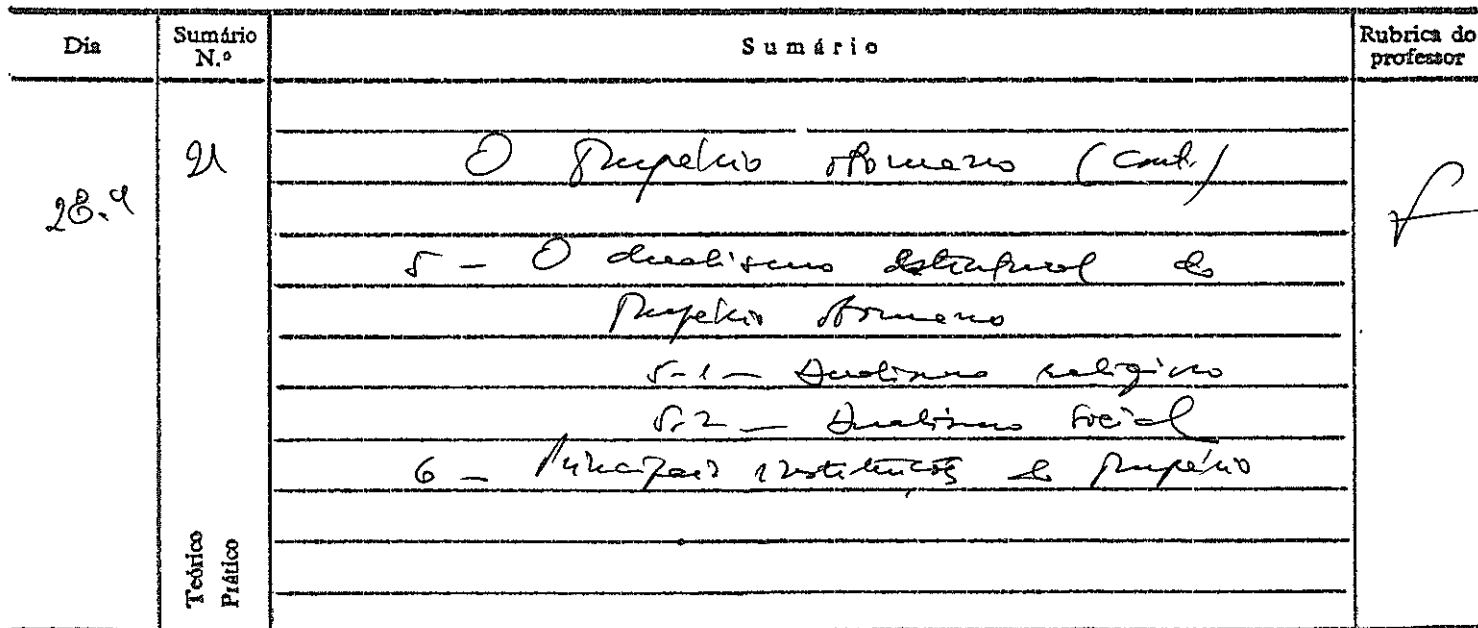 Dia
Sumário N.º
Sumário
Rubrica do professor
28.4
21
O Império Otomano (cont.)
5 - O dualismo estrutural do
Império Otomano
5-1 - Dualismo religioso
5.2 - Dualismo social
6 - Principais instituições do Império
Teórico
Prático